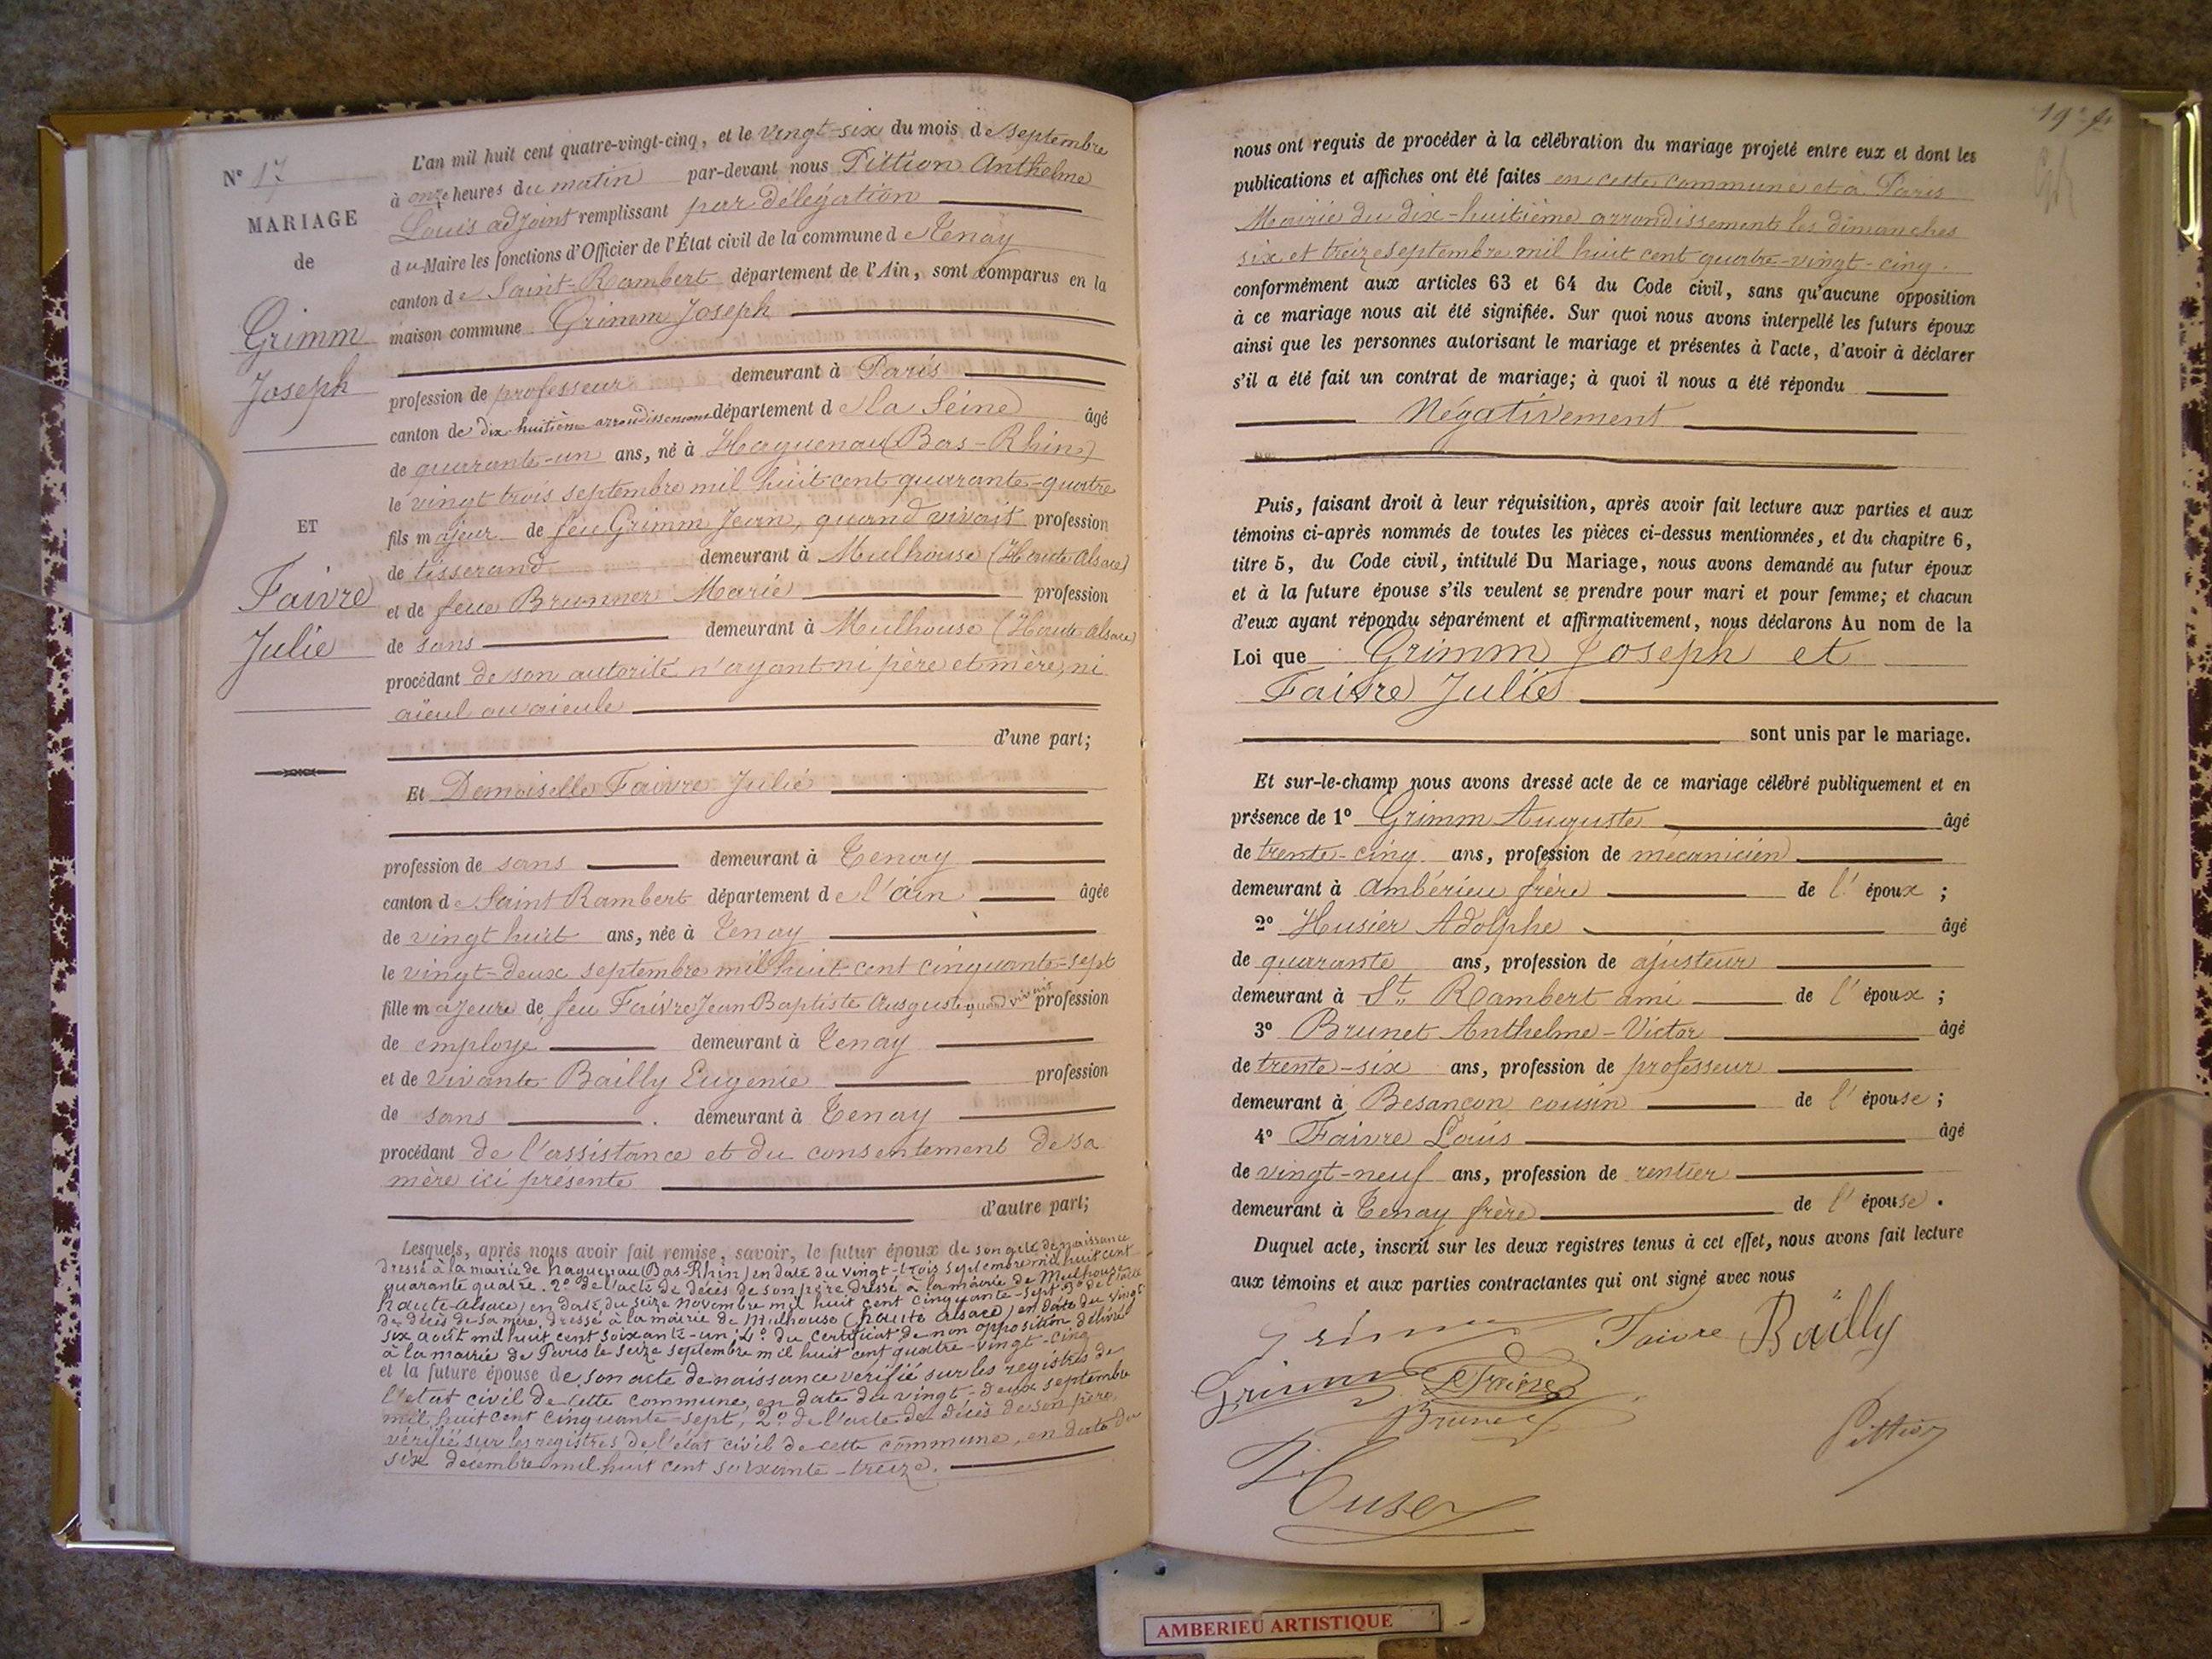 N° 17
MARIAGE
de
Grimm
Joseph
ET
Faivre
Julie
L'an mil huit cent quatre-vingt-cinq, et le vingt-six du mois de septembre
à onze heures du matin par-devant nous Pittion Anthelme
Louis adjoint remplissant par délégation
du Maire les fonctions d'Officier de l'État civil de la commune de Tenay
canton de Saint-Rambert département de l'Ain, sont comparus en la
maison commune Grimm Joseph
profession de professeur demeurant à Paris
canton de dix-huitième arrondissement département de la Seine âgé
de quarante-un ans, né à Haguenau (Bas-Rhin)
le vingt trois septembre mil huit cent quarante-quatre
fils majeur de feu Grimm Jean, quand vivait profession
de tisserand demeurant à Mulhouse (Haute Alsace)
et de feue Brunner Marie profession
de sans demeurant à Mulhouse (Haute Alsace)
procédant de son autorité n'ayant ni père et mère, ni
aïeul ou aieule
d'une part;
Et Demoiselle Faivre Julie
profession de sans demeurant à Tenay
canton de Saint Rambert département de l'ain âgée
de vingt huit ans, née à Tenay
le vingt-deux septembre mil huit cent cinquante-sept
fille majeure de feu Faivre Jean Baptiste Auguste quand vivait profession
de employe demeurant à Tenay
et de vivante Bailly Eugenie profession
de sans demeurant à Tenay
procédant de l'assistance et du consentement de sa
mère ici présente
d'autre part;
Lesquels, après nous avoir fait remise, savoir, le futur époux de son acte de naissance
dressé à la mairie de haguenau (Bas-Rhin) en date du vingt-trois septembre mil huit cent
quarante quatre. 2° de l'acte de décès de son père dressé à la mairie de Mulhouse
(haute-alsace) en date du seize novembre mil huit cent cinquante-sept 3° de l'acte
de décès de sa mère dressé à la mairie de Mulhouse (haute alsace) en date du vingt
six août mil huit cent soixante-un, 4° du certificat de non opposition délivré
à la mairie de Paris le seize septembre mil huit cent quatre-vingt-cinq
et la future épouse de son acte de naissance vérifié sur les registres de
l'état civil de cette commune, en date du vingt-deux septembre
mil huit cent cinquante-sept, 2° de l'acte de décès de son père,
vérifié sur les registres de l'état civil de cette commune, en date du
six décembre mil huit cent soixante-treize.
19e f.
nous ont requis de procéder à la célébration du mariage projeté entre eux et dont les
publications et affiches ont été faites en cette commune et à Paris
Mairie du dix-huitième arrondissement les dimanches
six et treize septembre mil huit cent quatre-vingt-cinq.
conformément aux articles 63 et 64 du Code civil, sans qu'aucune opposition
à ce mariage nous ait été signifiée. Sur quoi nous avons interpellé les futurs époux
ainsi que les personnes autorisant le mariage et présentes à l'acte, d'avoir à déclarer
s'il a été fait un contrat de mariage; à quoi il nous a été répondu
Négativement
Puis, faisant droit à leur réquisition, après avoir fait lecture aux parties et aux
témoins ci-après nommés de toutes les pièces ci-dessus mentionnées, et du chapitre 6,
titre 5, du Code civil, intitulé Du Mariage, nous avons demandé au futur époux
et à la future épouse s'ils veulent se prendre pour mari et pour femme; et chacun
d'eux ayant répondu séparément et affirmativement, nous déclarons Au nom de la
Loi que Grimm Joseph et
Faivre Julie
sont unis par le mariage.
Et sur-le-champ nous avons dressé acte de ce mariage célébré publiquement et en
présence de 1° Grimm Auguste âgé
de trente-cinq ans, profession de mécanicien
demeurant à ambérieu frère de l'époux;
2° Husier Adolphe âgé
de quarante ans, profession de ajusteur
demeurant à St Rambert ami de l'époux;
3° Brunet Anthelme-Victor âgé
de trente-six ans, profession de professeur
demeurant à Besancon cousin de l'épouse;
4° Faivre Louis âgé
de vingt-neuf ans, profession de rentier
demeurant à Tenay frère de l'épouse.
Duquel acte, inscrit sur les deux registres tenus à cet effet, nous avons fait lecture
aux témoins et aux parties contractantes qui ont signé avec nous
Grimm Faivre Bailly
Grimm L Faivre
Brunet
Pittion
Huser
AMBERIEU ARTISTIQUE